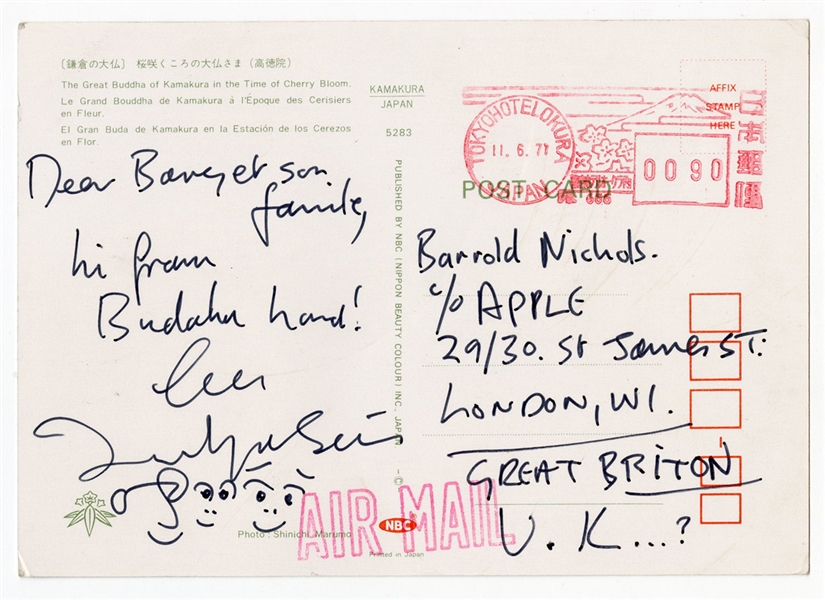 〔鎌倉の大仏〕 桜咲くころの大仏さま (高徳院)
The Great Buddha of Kamakura in the Time of Cherry Bloom.
Le Grand Bouddha de Kamakura á l'Époque des Cerisiers
en Fleur.
El Gran Buda de Kamakura en la Estación de los Cerezos
en Flor.
KAMAKURA
JAPAN
5283
TOKYOHOTELOKURA
11. 6. 71
JAPAN
0090
日本郵便
AFFIX
STAMP
HERE
POST CARD
Dear son
family,
hi fram
Budaha hand!
PUBLISHED BY NBC (NIPPON BEAUTY COLOUR) INC., JAPAN -©
Barrold Nichols.
c/o APPLE
29/30. St James ST:
LONDON, W1.
GREAT BRITON
U. K ...?
AIR MAIL
NBC
Photo: Shinichi Marumo
Printed in Japan